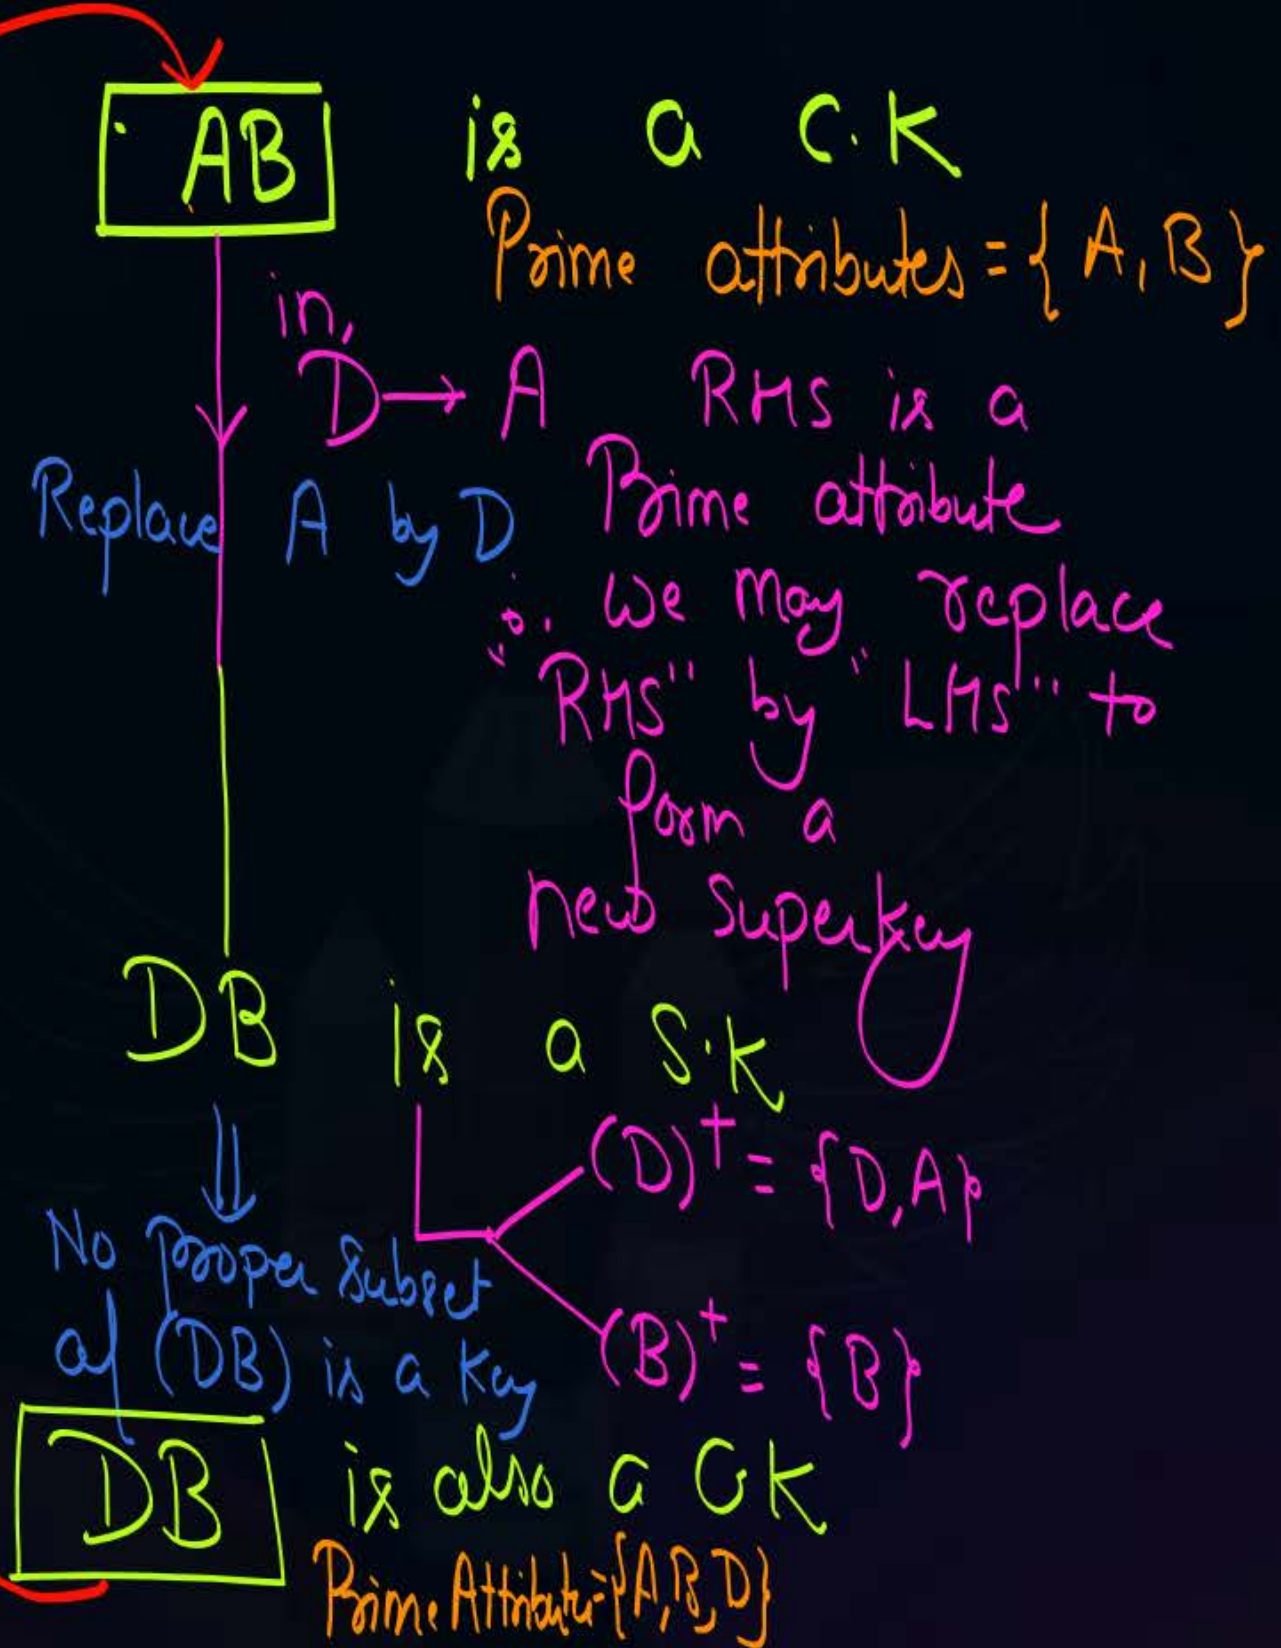 AB is a C.K
Prime attributes = { A, B }
in,
D → A RHS is a
Replace A by D Prime attribute
∴ we may replace
"RHS" by "LHS" to
form a
new Superkey
DB is a S.K
(D)⁺ = {D, A}
No proper subset
of (DB) is a key (B)⁺ = {B}
DB is also a CK
Prime Attribute = {A, B, D}